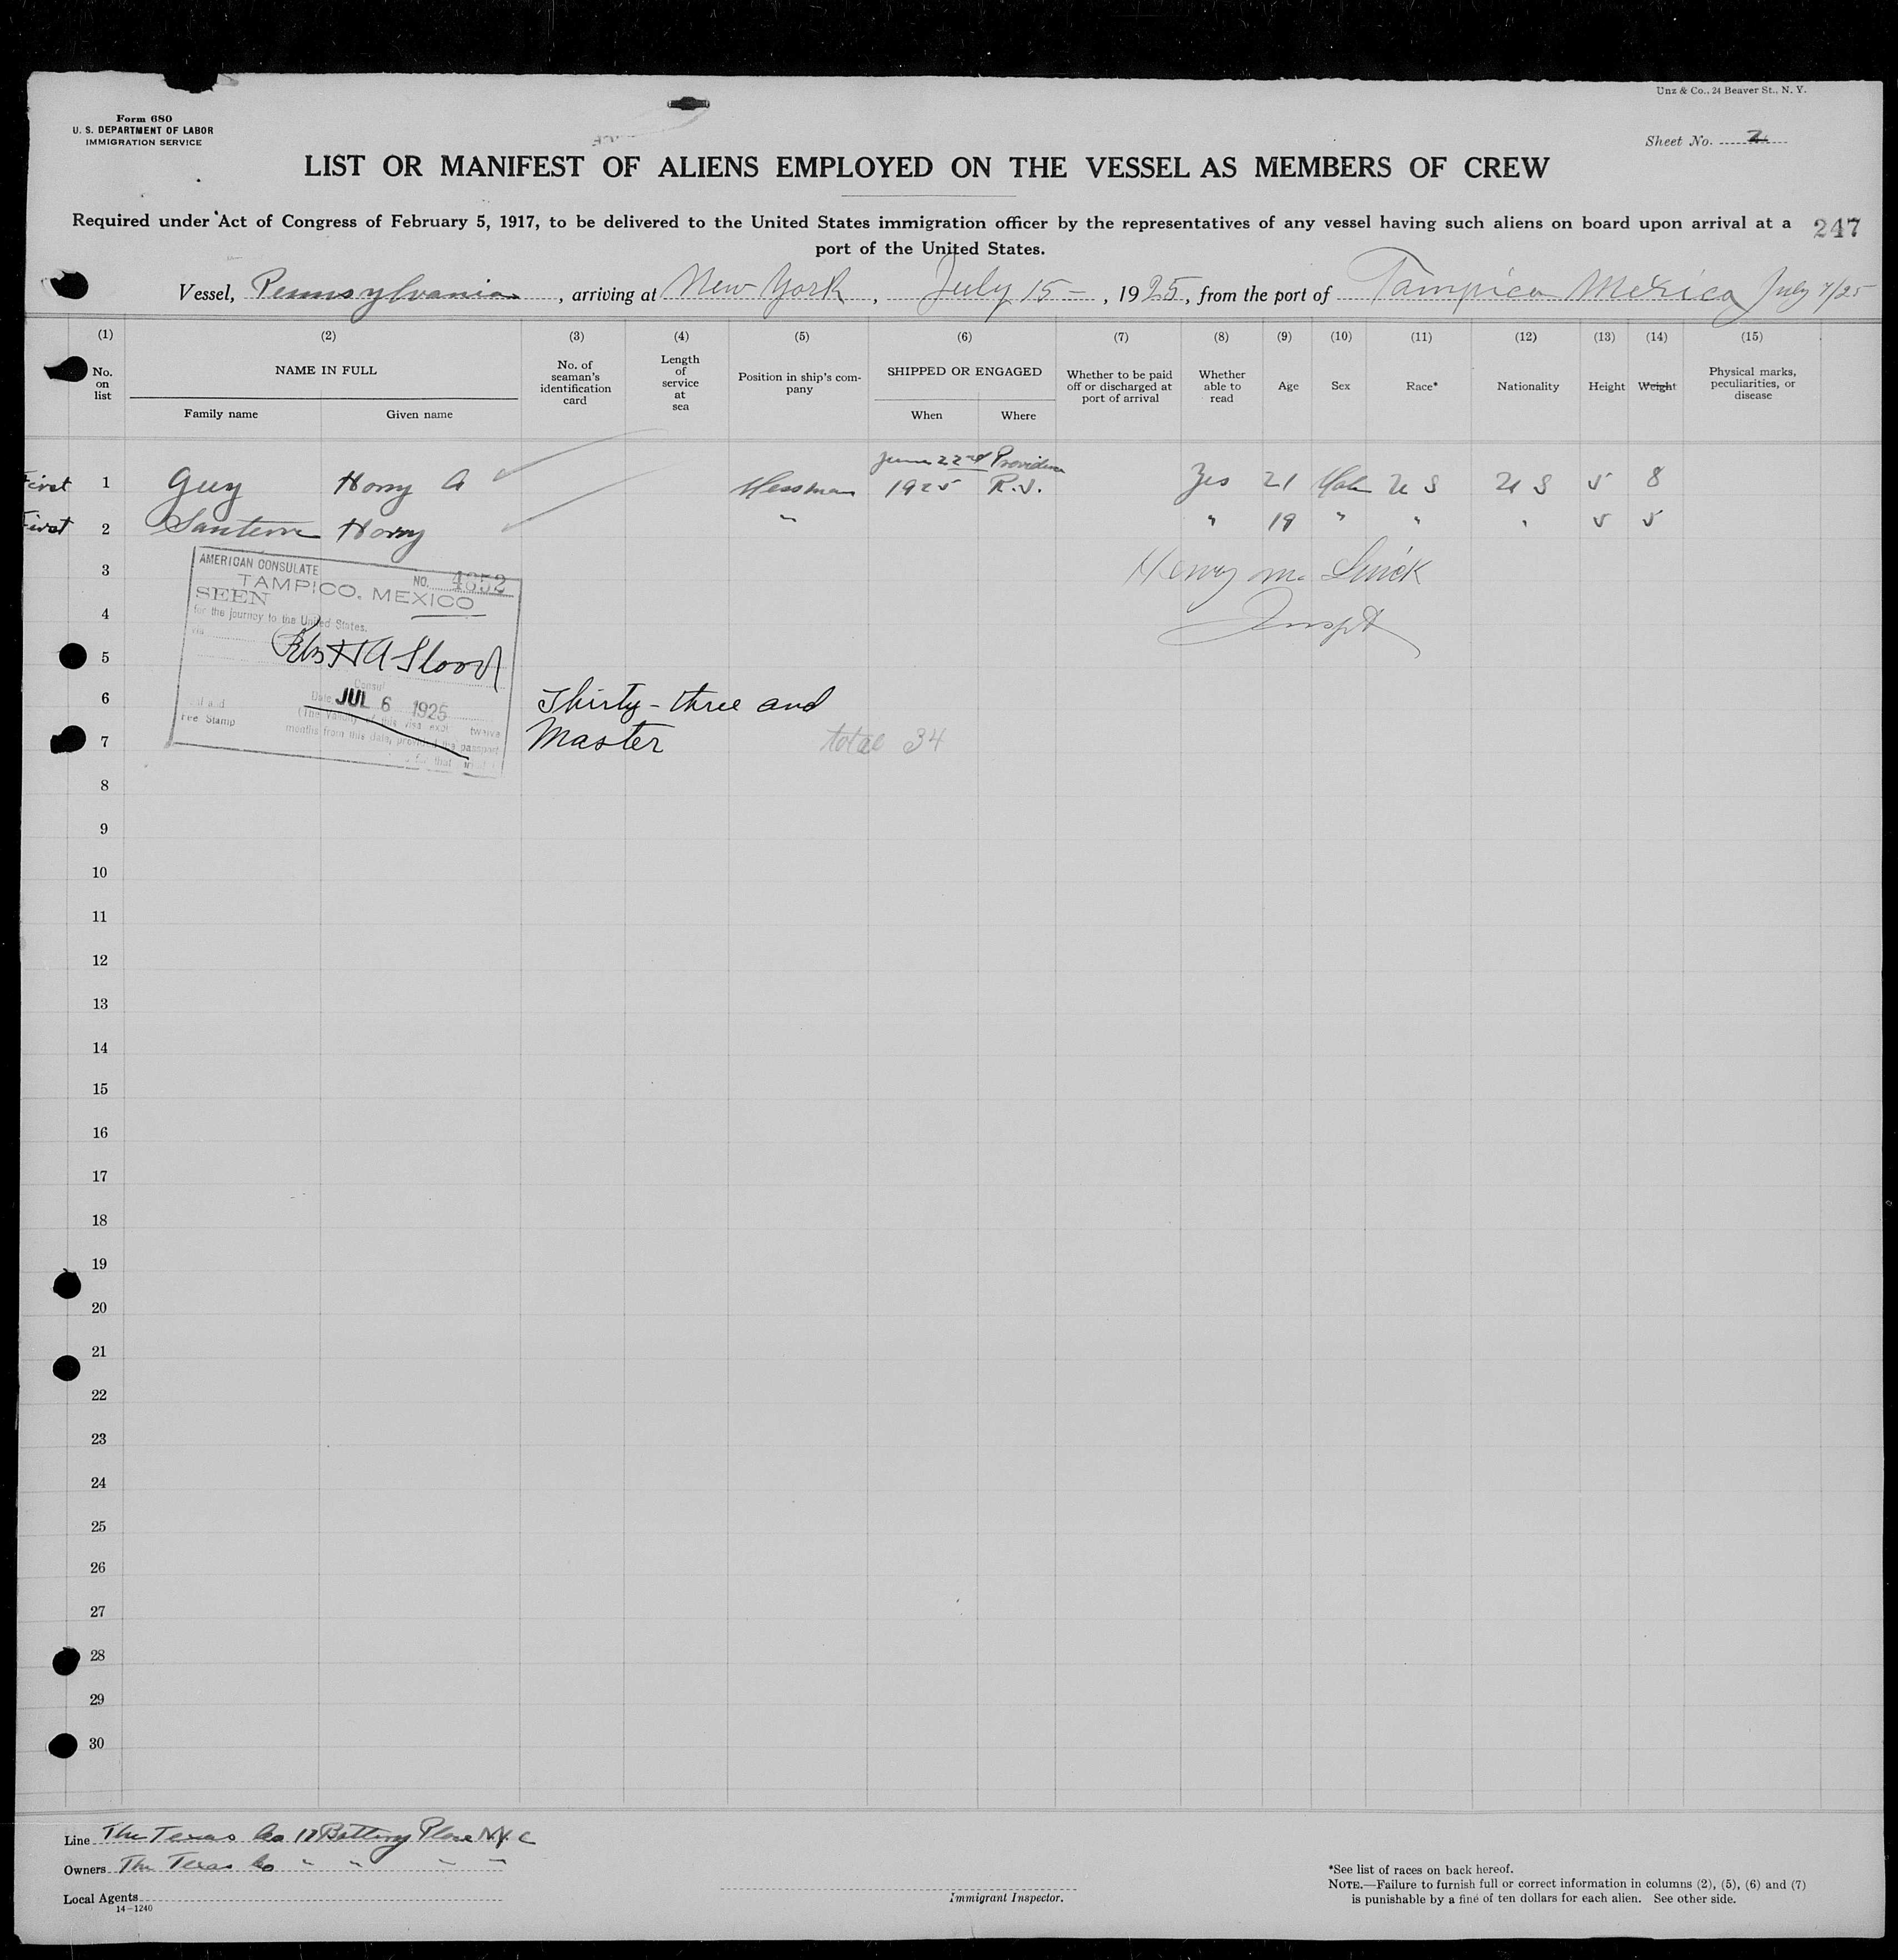 Unz & Co., 24 Beaver St., N. Y.
Form 680
U. S. DEPARTMENT OF LABOR
IMMIGRATION SERVICE
Sheet No. 2
LIST OR MANIFEST OF ALIENS EMPLOYED ON THE VESSEL AS MEMBERS OF CREW
Required under Act of Congress of February 5, 1917, to be delivered to the United States immigration officer by the representatives of any vessel having such aliens on board upon arrival at a
port of the United States.
247
Vessel, Pennsylvania, arriving at New York, July 15 -, 1925, from the port of Tampico Mexico July 7/25
(1) (2) (3) (4) (5) (6) (7) (8) (9) (10) (11) (12) (13) (14) (15)
No. on list
NAME IN FULL
Family name Given name
No. of seaman's identification card
Length of service at sea
Position in ship's company
SHIPPED OR ENGAGED
When Where
Whether to be paid off or discharged at port of arrival
Whether able to read
Age
Sex
Race*
Nationality
Height
Weight
Physical marks, peculiarities, or disease
June 22nd Providence
First 1 Guy Harry A Messman 1925 R.I. Yes 21 Male U S U S 5 8
First 2 Harry " " 19 " " " 5 5
3 Henry M.
4 Inspt
AMERICAN CONSULATE
NO. 4652
TAMPICO, MEXICO
SEEN
for the journey to the United States.
Consul
Date JUL 6 1925
(The validity of this visa twelve
months from this date, provided the passport
Fee Stamp
5
6 Thirty-three and
7 Master total 34
8
9
10
11
12
13
14
15
16
17
18
19
20
21
22
23
24
25
26
27
28
29
30
Line The Texas Co 17 Battery Place N.Y. C
Owners The Texas Co " " " "
Local Agents
14-1240
Immigrant Inspector.
*See list of races on back hereof.
NOTE.—Failure to furnish full or correct information in columns (2), (5), (6) and (7)
is punishable by a fine of ten dollars for each alien. See other side.